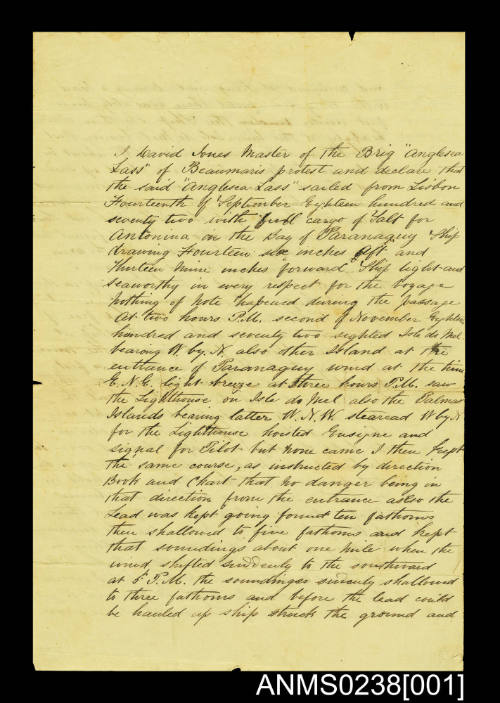 I, David Jones Master of the Brig "Anglesea
Lass" of Beaumaris protest and declare that
the said "Anglesea Lass" sailed from Lisbon
Fourteenth of September Eighteen hundred and
seventy two with full cargo of Salt for
Antonina on the Bay of Paranaguy Ship
drawing Fourteen six inches Aft and
Thirteen Nine inches forward. Ship tight and
seaworthy in every respect for the voyage
Nothing of Note happened during the passage
At two hours P.M. second of November Eighteen
hundred and seventy two sighted Isle do Mel
bearing W. by N. also other Island at the
entrance of Paranaguy wind at the time
E.N.E. light breeze at three hours P.M. saw
the Lighthouse on Isle do Mel also the Palmas
Islands bearing latter W.N.W. steared W by N
for the Lighthouse hoisted Ensigne and
Signal for Pilot but none came I then kept
the same course, as instructed by direction
Book and Chart that no danger being in
that direction from the entrance also the
Lead was kept going found ten fathoms
then shallowed to five fathoms and kept
that soundings about one mile when the
wind shifted suddenly to the southward
at 5 P.M. the soundings suddenly shallowed
to three fathoms and before the lead could
be hauled up ship struck the ground and
ANMS0238[001]